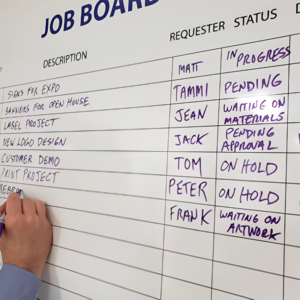 JOB BOARD
DESCRIPTION REQUESTER STATUS
SIGNS FOR EXPO MATT IN PROGRESS
BANNERS FOR OPEN HOUSE TAMMI PENDING
LABEL PROJECT JEAN WAITING ON
MATERIALS
NEW LOGO DESIGN JACK PENDING
APPROVAL
CUSTOMER DEMO TOM ON HOLD
PRINT PROJECT PETER ON HOLD
FRANK WAITING ON
ARTWORK